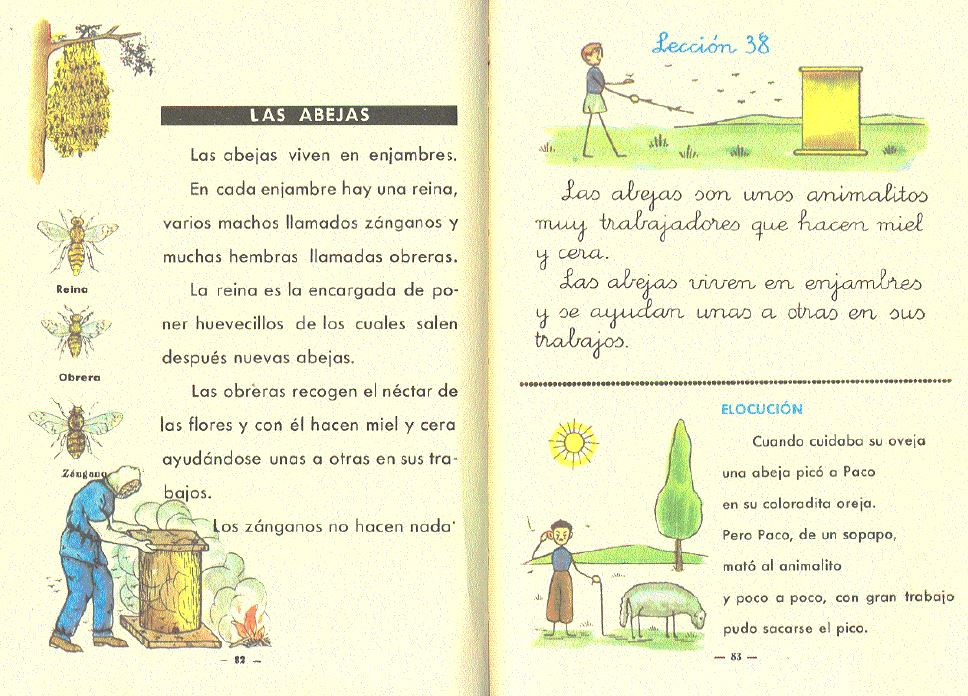 LAS ABEJAS
Las abejas viven en enjambres.
En cada enjambre hay una reina,
varios machos llamados zánganos y
muchas hembras llamadas obreras.
La reina es la encargada de po-
ner huevecillos de los cuales salen
después nuevas abejas.
Las obreras recogen el néctar de
las flores y con él hacen miel y cera
ayudándose unas a otras en sus tra-
bajos.
Los zánganos no hacen nada
Reina
Obrera
Zángano
— 82 —
Lección 38
Las abejas son unos animalitos
muy trabajadores que hacen miel
y cera.
Las abejas viven en enjambres
y se ayudan unas a otras en sus
trabajos.
ELOCUCIÓN
Cuando cuidaba su oveja
una abeja picó a Paco
en su coloradita oreja.
Pero Paco, de un sopapo,
mató al animalito
y poco a poco, con gran trabajo
pudo sacarse el pico.
— 83 —